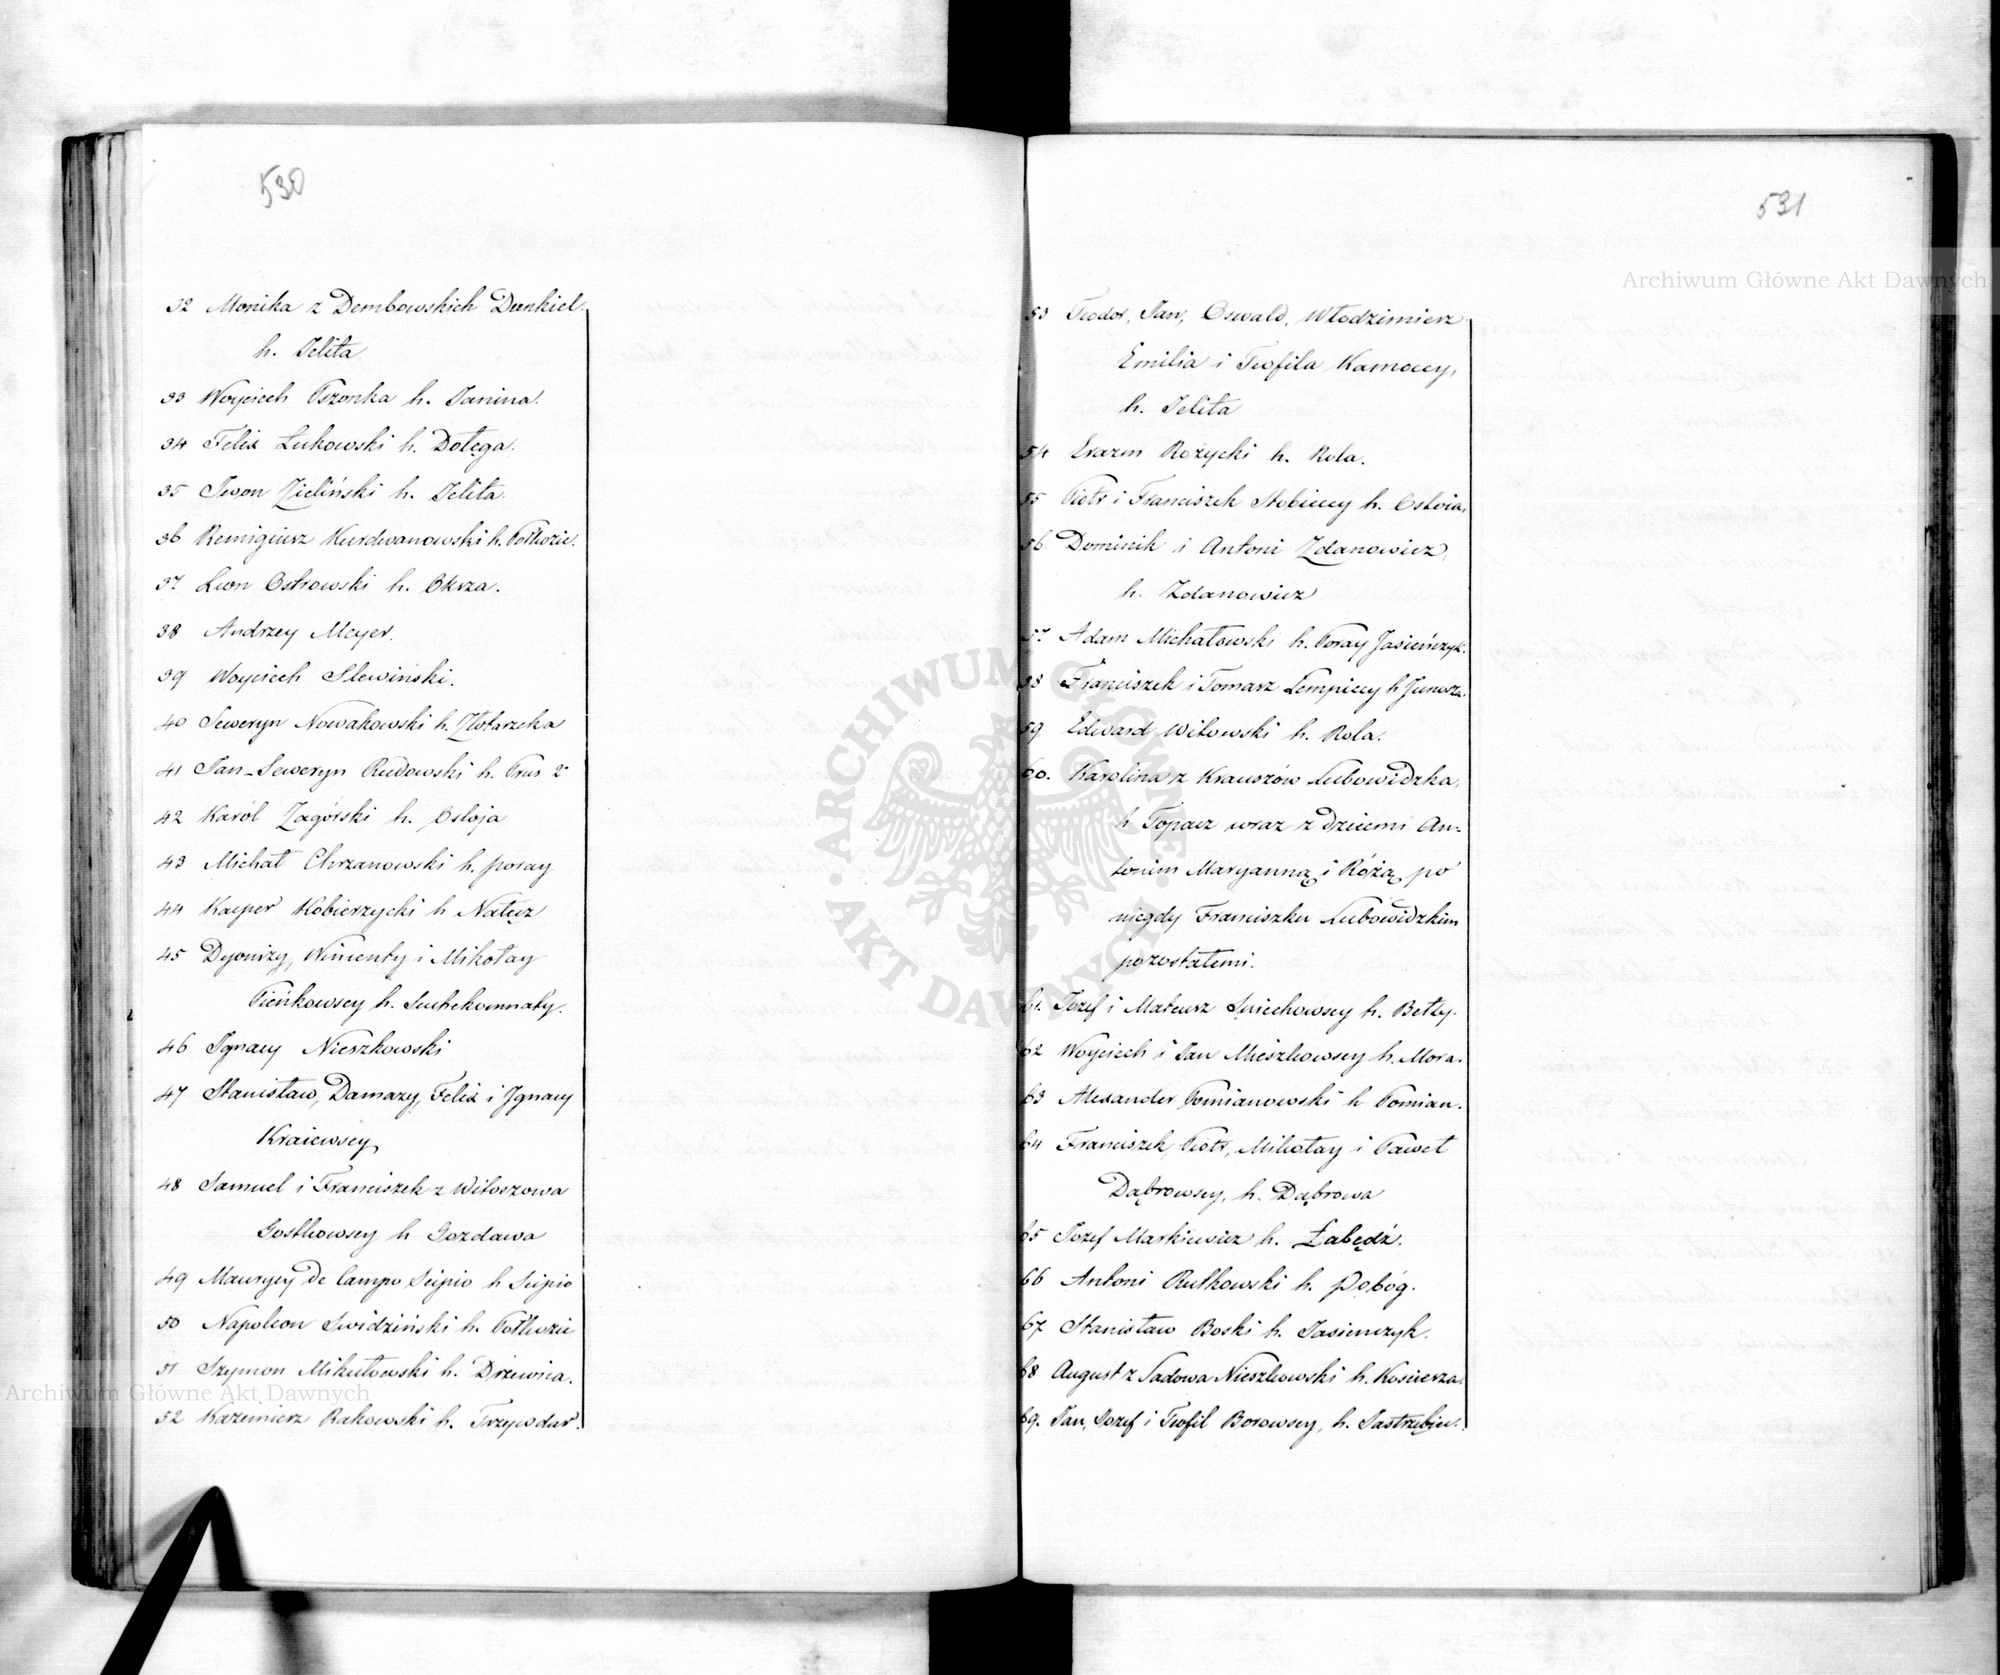 530
32 Monika z Dembowskich Dunkiel
h. Jelita
33 Woyciech Pszonka h. Janina.
34 Felix Łukowski h. Dołęga.
35 Iwon Zieliński h. Jelita.
36 Remigiusz Kurdwanowski h. Półkozic.
37 Leon Ostrowski h. Okrza.
38 Andrzey Meyer.
39 Woyciech Slewiński.
40 Seweryn Nowakowski h.
41 Jan-Seweryn Rudowski h. Prus 2º
42 Karól Zagórski h. Ostoja
43 Michał Chrzanowski h. poray
44 Kacper Kobierzycki h Nałęz
45 Dyonizy, Wincenty i Mikołay
Pieńkowscy h. Suchekomnaty.
46 Ignacy Nieszkowski
47 Stanisław, Damazy, Felix i Ignacy
Kraiewscy
48 Samuel i Franciszek z Witoszowa
Gostkowscy h Gozdawa
49 Maurycy de Campo Scipio h Scipio
50 Napoleon Swidziński h. Półkozic
51 Szymon Mikułowski h. Drzewica.
52 Kazimierz Rakowski h. Trzywdar.
531
53 Teodor, Jan, Oswald, Włodzimierz
Emilia i Teofila Kamoccy,
h. Jelita
54 Erazm Rożycki h. Rola.
55 Piotr i Franciszek Stobieccy h. Ostoia.
56. Dominik i Antoni Zdanowicz,
h. Zdanowicz
57 Adam Michałowski h. Poray Jasieńczyk.
58 Franciszek i Tomasz Lempiccy h Junosza.
59 Edward Witowski h. Rola.
60. Karolina z Krauszów Lubowidzka,
h Topacz wraz z dziećmi An-
tonim Maryanną i Różą po
niegdy Franciszku Lubowidzkim
pozostałemi.
61. Jozef i Mateusz Smiechowscy h. Bełty.
62 Woyciech i Jan Mieszkowscy h. Mora.
63 Alexander Pomianowski h Pomian.
64 Franciszek, Piotr, Mikołay i Paweł
Dąbrowscy, h. Dąbrowa
65 Jozef Markiewicz h. Łabędź.
66 Antoni Rutkowski h. Pobóg.
67 Stanisław Boski h. Jasienczyk.
68 August z Sadowa Nieszkowski h. Kościesza.
69. Jan, Jozef i Teofil Borowscy, h. Jastrzębiec.
Archiwum Główne Akt Dawnych
Archiwum Główne Akt Dawnych
ARCHIWUM GŁÓWNE · AKT DAWNYCH ·